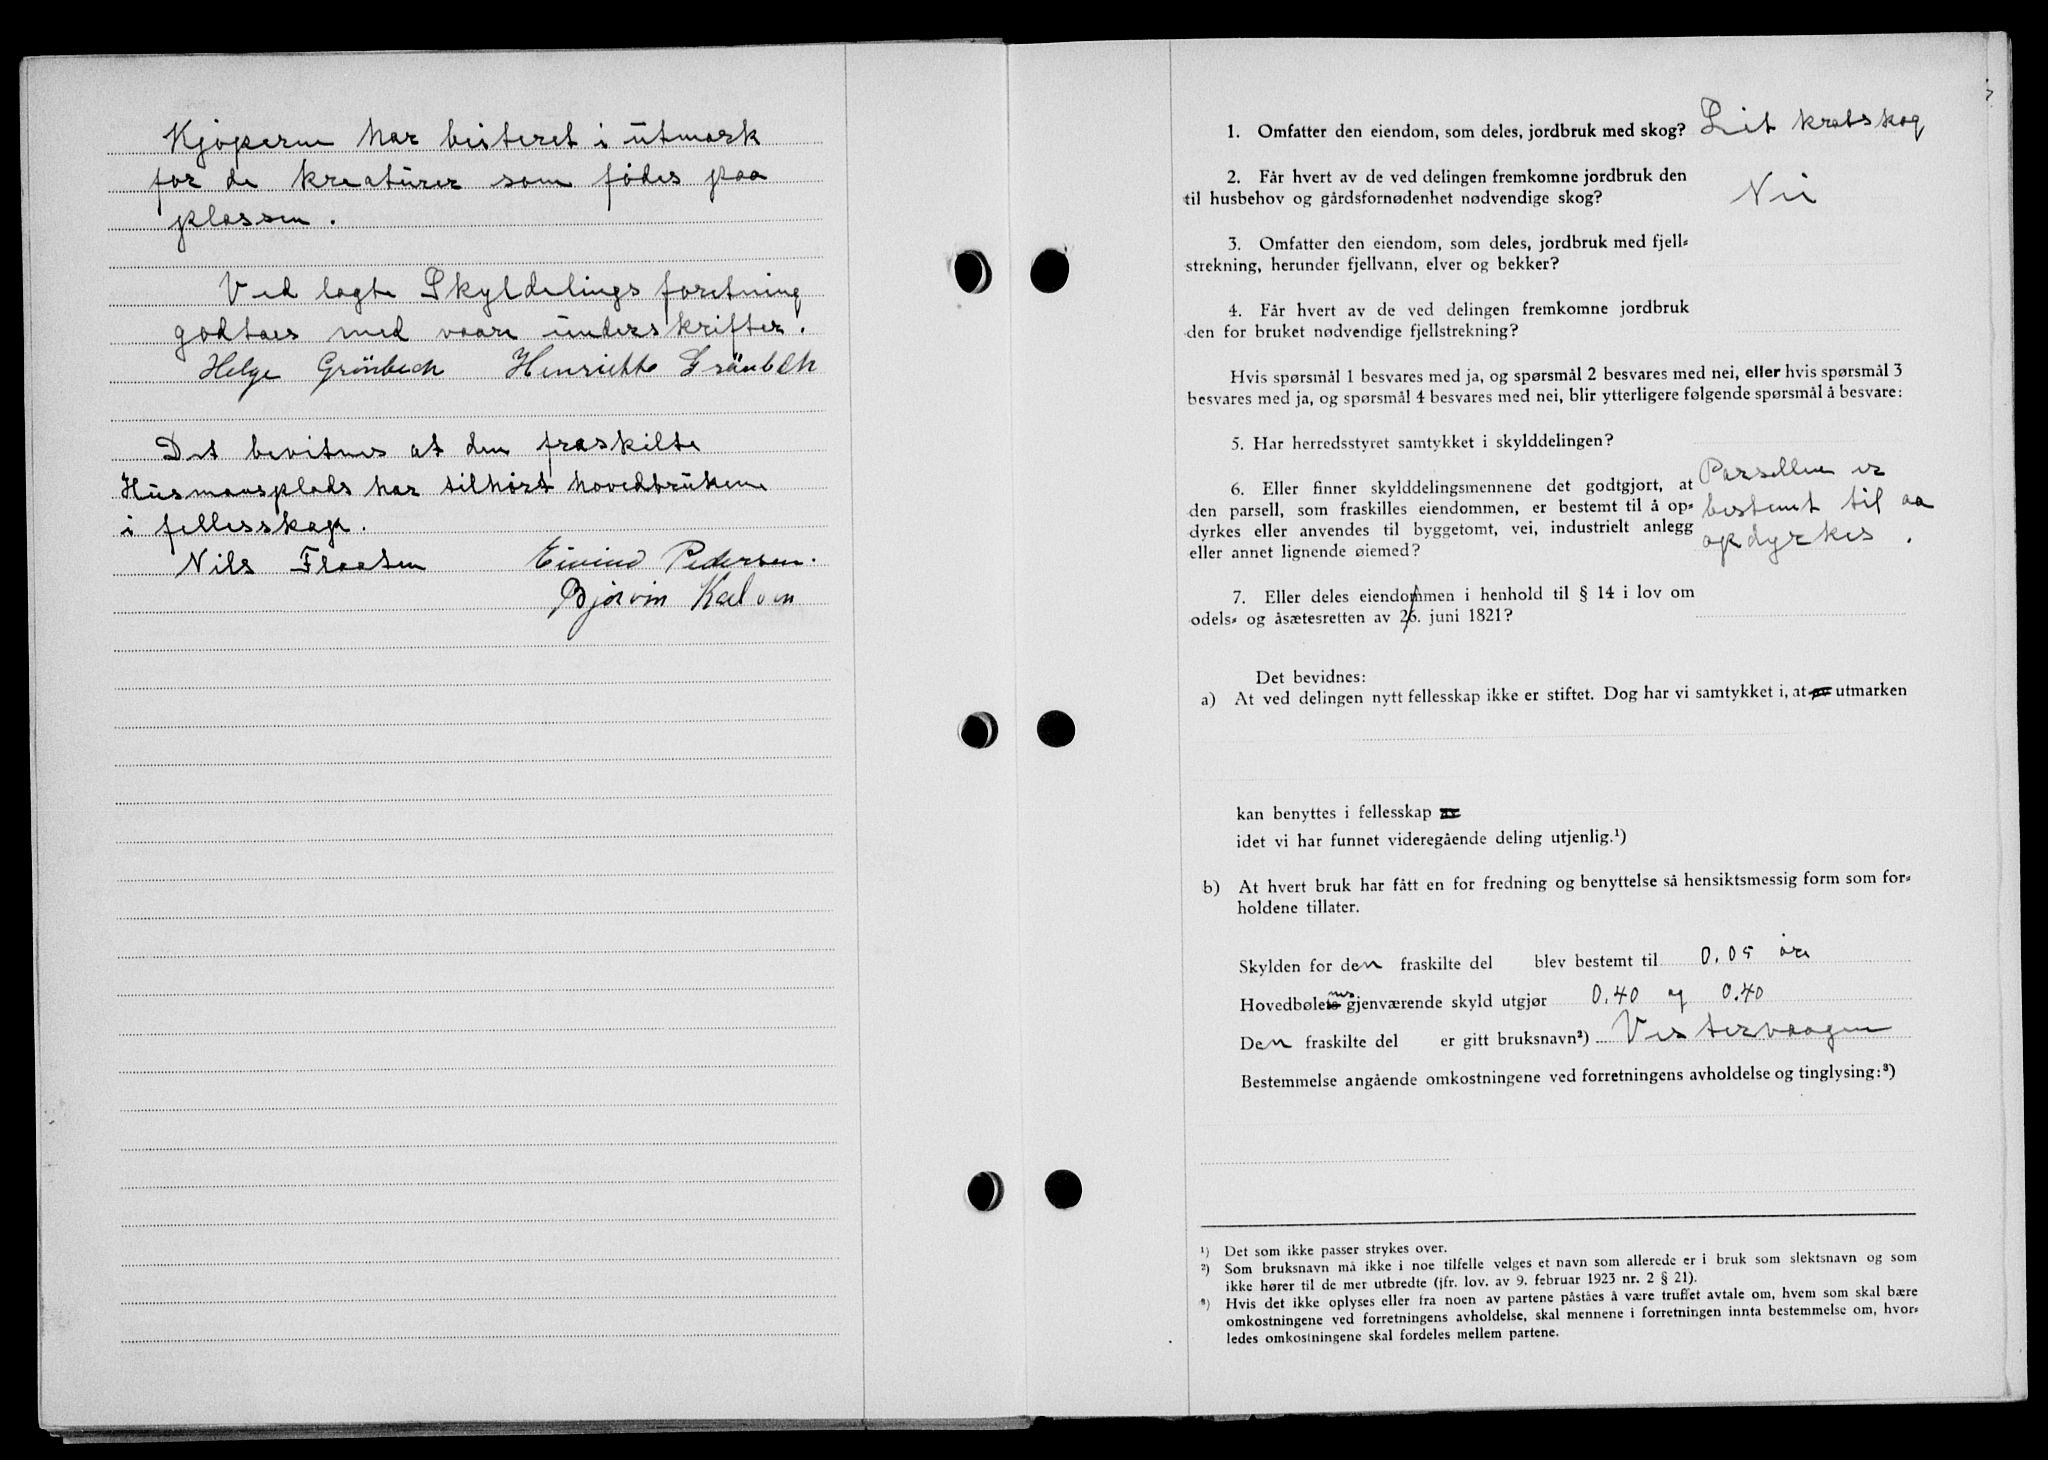 Kjøperne har beiteret i utmark
for de kreaturer som fødes paa
plassen.
Ved lagte Skylddelings foretning
godtaes med vaare underskrifter.
Helge Grönbech Henriette Grönbech
Det bevitnes at den fraskilte
Husmansplads har tilhørt hovedbrukene
i fellesskap.
Nils Flaaten Eivind Pedersen.
Bjørvin
1. Omfatter den eiendom, som deles, jordbruk med skog? Lit kratskog
2. Får hvert av de ved delingen fremkomne jordbruk den
til husbehov og gårdsfornødenhet nødvendige skog? Nei
3. Omfatter den eiendom, som deles, jordbruk med fjell-
strekning, herunder fjellvann, elver og bekker?
4. Får hvert av de ved delingen fremkomne jordbruk
den for bruket nødvendige fjellstrekning?
Hvis spørsmål 1 besvares med ja, og spørsmål 2 besvares med nei, eller hvis spørsmål 3
besvares med ja, og spørsmål 4 besvares med nei, blir ytterligere følgende spørsmål å besvare:
5. Har herredsstyret samtykket i skylddelingen?
6. Eller finner skylddelingsmennene det godtgjort, at
den parsell, som fraskilles eiendommen, er bestemt til å op-
dyrkes eller anvendes til byggetomt, vei, industrielt anlegg
eller annet lignende øiemed?
Parsellen er
bestemt til aa
opdyrkes.
7. Eller deles eiendommen i henhold til § 14 i lov om
odels- og åsætesretten av 26. juni 1821?
Det bevidnes:
a) At ved delingen nytt fellesskap ikke er stiftet. Dog har vi samtykket i, at av utmarken
kan benyttes i fellesskap av
idet vi har funnet videregående deling utjenlig.¹)
b) At hvert bruk har fått en for fredning og benyttelse så hensiktsmessig form som for-
holdene tillater.
Skylden for den fraskilte del blev bestemt til 0.05 øre
Hovedbølenes gjenværende skyld utgjør 0.40 og 0.40
Den fraskilte del er gitt bruksnavn²) Vestervaagen
Bestemmelse angående omkostningene ved forretningens avholdelse og tinglysing:³)
¹) Det som ikke passer strykes over.
²) Som bruksnavn må ikke i noe tilfelle velges et navn som allerede er i bruk som slektsnavn og som
ikke hører til de mer utbredte (jfr. lov. av 9. februar 1923 nr. 2 § 21).
³) Hvis det ikke oplyses eller fra noen av partene påståes å være truffet avtale om, hvem som skal bære
omkostningene ved forretningens avholdelse, skal mennene i forretningen innta bestemmelse om, hvor-
ledes omkostningene skal fordeles mellem partene.